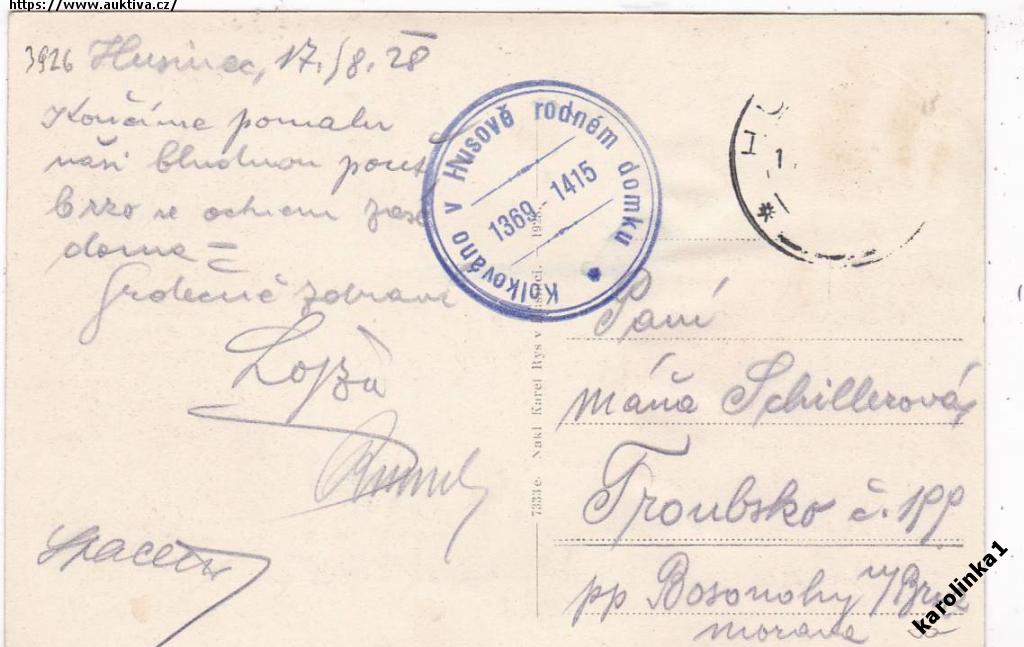 https://www.auktiva.cz/
3926 Husinec, 17./8.28
Končíme pomalu
naši bludnou pouť
brzo se octnem zase
doma =
Srdečně zdraví
Lojza
Kolkováno v Husově rodném domku
1369 - 1415
7333 e. Nakl Karel Rys v
1
Paní
Máňa Schillerová
Troubsko č. 199
pp Bosonohy u Brna
Morava
karolinka1